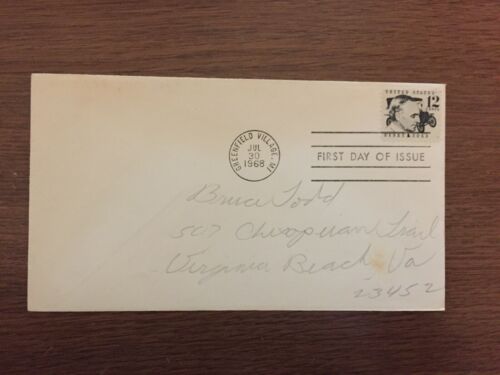 UNITED STATES
12
HENRY FORD
GREENFIELD VILLAGE, MI
JUL
30
1968
FIRST DAY OF ISSUE
Bruce Todd
507 Trail
Virginia Beach, Va
23452